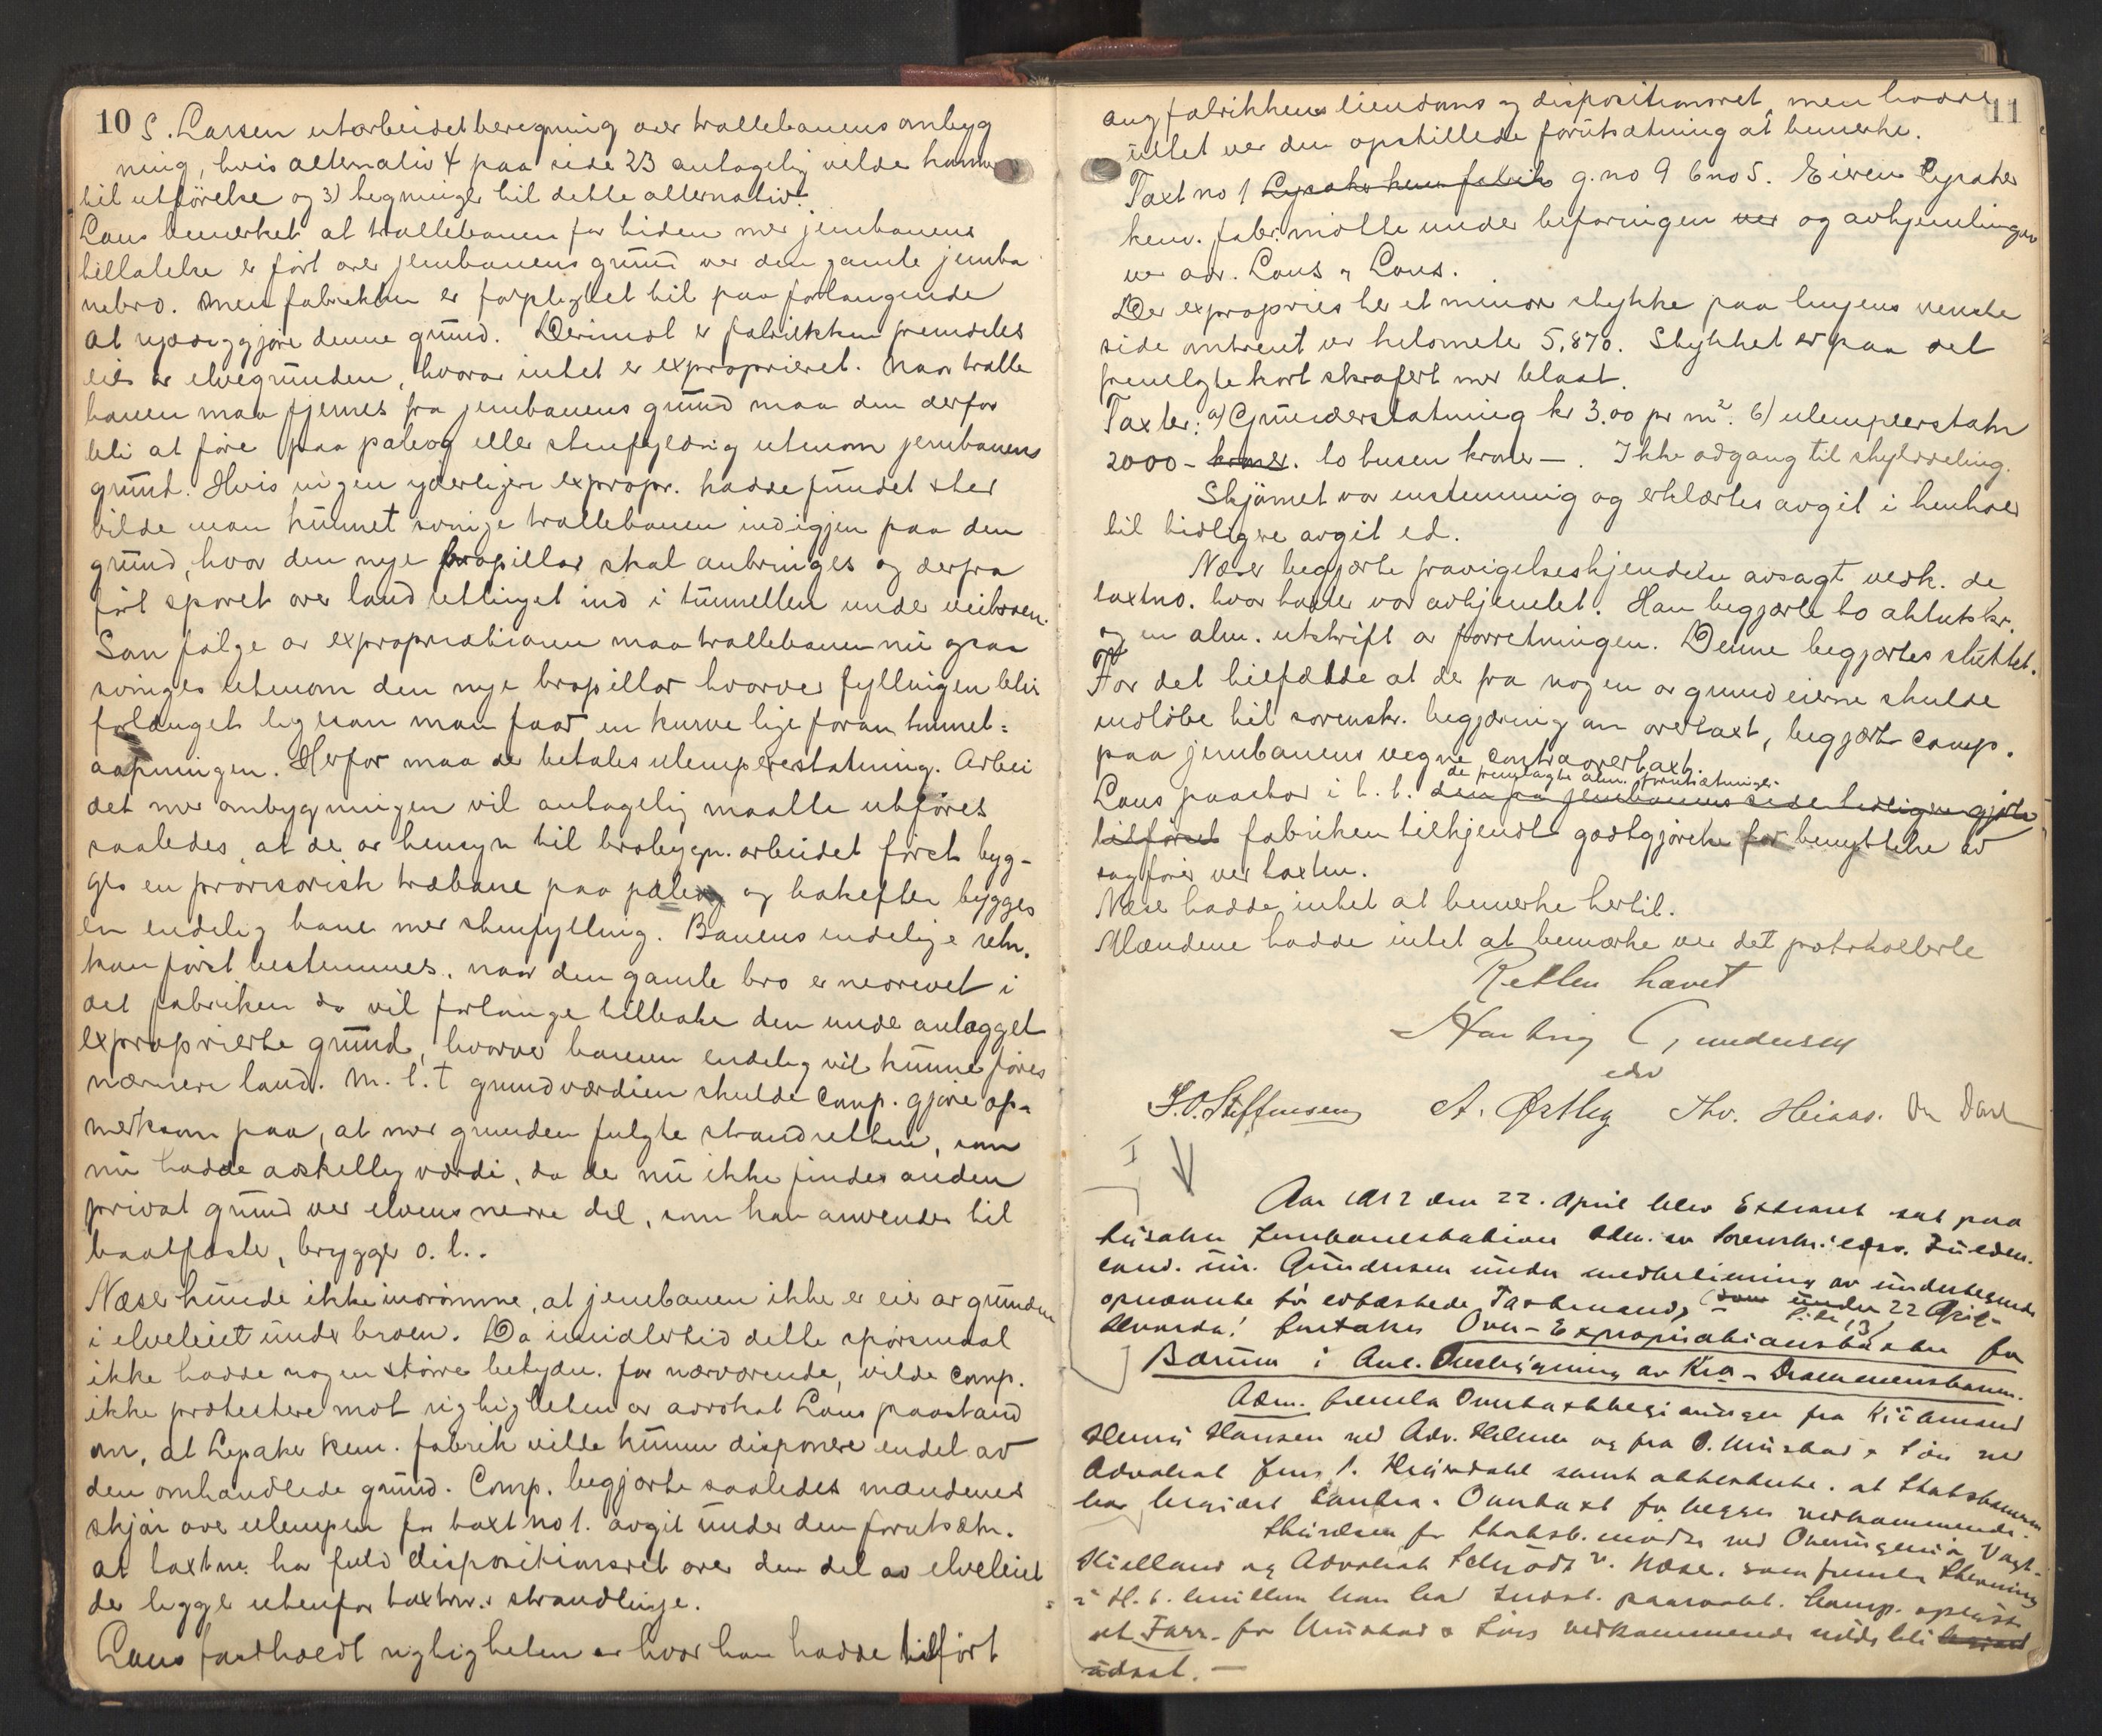 10 S. Larsen utarbeidet beregning over trallebanens ombyg
ning, hvis alternativ 4 paa side 23 antagelig vilde komme
til utførelse og 3) tegninger til dette alternativ.
Lous bemerket at trallebanen for tiden mer jernbanens
tillatelse er ført over jernbanens grund ver den gamle jernba
nebro. Men fabrikken er forpligtet til paa forlangende
at ryddiggjøre denne grund. Derimot er fabrikken fremdeles
eier av elvegrunden, hvorav intet er exproprieret. Naar tralle
banen maa fjernes fra jernbanens grund maa den derfor
bli at føre paa pæleog eller stenfyldnig utenom jernbanens
grund. Hvis ingen yderligere expropr. hadde fundet sted
vilde man kunnet svinge trallebanen ind igjen paa den
grund, hvor den nye bropillar skal anbringes og derfra
ført sporet over land utlinjet ind i tunnellen under veibroen.
Som følge av expropriationen maa trallebanen nu ogsaa
svinges utenom den nye bropillar hvorved fyllingen blir
forlænget ligesom man faar en kurve lige foran tunnel=
aapningen. Herfor maa der betales ulempeerstatning. Arbei
det mer ombygningen vil antagelig maatte utføres
saaledes, at der av hensyn til brobygn. arbeidet først byg-
ges en provisorisk træbane paa pæler og bakefter bygges
en endelig bane mer stenfylling. Banens endelige retn.
kan først bestemmes, naar den gamle bro er nedrevet i
det fabriken da vil forlange tilbake den under anlægget
exproprierte grund, hvorved banen endelig vil kunne føres
nærmere land. M. h. t grundværdien skulde Comp. gjøre op-
merksom paa, at mer grunden fulgte strandretten, som
nu hadde adskellig værdi, da der nu ikke findes anden
privat grund ver elvens nedre del, som kan anvendes til
baatfæste, brygger o. l..
Næser kunde ikke indrømme, at jernbanen ikke er eier av grunden
i elveleiet under broen. Da imidlertid dette spørsmaal
ikke hadde nogen større betydn. for nærværende, vilde Comp.
ikke protestere mot rigtigheten av advokat Lous paastand
om, at Lysaker kem. fabrik vilde kunne disponere endel av
den omhandlede grund. Comp. begjærte saaledes mændenes
skjøn over ulempen for taxt no 1. avgit under den forutsætn.
at taxtnr. har fuld dispositionsret over den del av elveleiet
der ligger utenfor taxtnr.s strandlinje.
Lous fastholdt rigtigheten av hvad han hadde tilført
11
ang fabrikkens eiendoms og dispositionsret, men hadde
intet ver den opstillede forutsætning at bemerke.
Taxt no 1 Lysaker kem. fabrik g. no 9 b no 5. Eieren Lysaker
kem. fabr. møtte under befaringen ver og avhjemlingen
ver adv. Lous & Lous.
Der expropries her et mindre stykke paa linjens venstre
side omtrent ver kilometer 5,870. Stykket er paa det
fremlagte kart skrafert mer blaat.
Taxter: a) Grunderstatning kr 3.00 pr m². b) ulempeerstatn
2000 - kroner. to tusen kroner —. Ikke adgang til skylddeling.
Skjønnet var enstemmig og erklærtes avgit i henhold
til tidligere avgit ed.
Næser begjærte fravigelseskjendelse avsagt vedk. de
taxtno. hvor taxter var avhjemlet. Han begjærte to aktutskr.
og en alm. utskrift av forretningen. Denne begjærtes sluttet.
For det tilfælde at der fra nogen av grundeierne skulde
indløbe til sorenskr. begjæring om overtaxt, begjært Comp.
paa jernbanens vegne contraovertaxt.
de fremlagte alm. forutsætninger
Lous paastod i h. t. den fra jernbanens side tidligere gjorte
tilførsel fabriken tilkjendt godtgjørelse for benyttelse av
sagfører ver taxten.
Næser hadde intet at bemerke hertil.
Mændene hadde intet at bemærke ver det protokollerte
Retten hævet
Harbrig Gundersen
edsv
S. O. Steffensen A. Østby Thv. Heiaas. On Dæhl
I
Aar 1912 den 22. April blev Extraret sat paa
Jernbanestation Adm. av Sorenskr.
cand. jur. Gundersen under medbetjening av undertegnede
opnævnte edfæstede Taxtmænd, (som under 22 April
foretakes Over-Expropriationstaxter for
Bærum i Anl. Ombygning av Kra - Drammensbanen.
Adm. fremla Overtaxtbegjæringer fra
Henrik Hansen ved Adv. Helmer og fra O. Mustad & Søn ved
Advokat Jens P. Heyerdahl samt attesterte, at Statsbanen
har begjært Contra-Overtaxt for begges vedkommende.
Styrelsen for Statsb. mødte ved Overingeniør Vogt-
Kielland og Advokat Schiødt v. Næser, som fremla Stevning
i H. t. hvilken han har Indst. paaraabt. Comp. oplyste
at Forr. for Mustad & Søns vedkommende vilde bli begjært
udsat. —